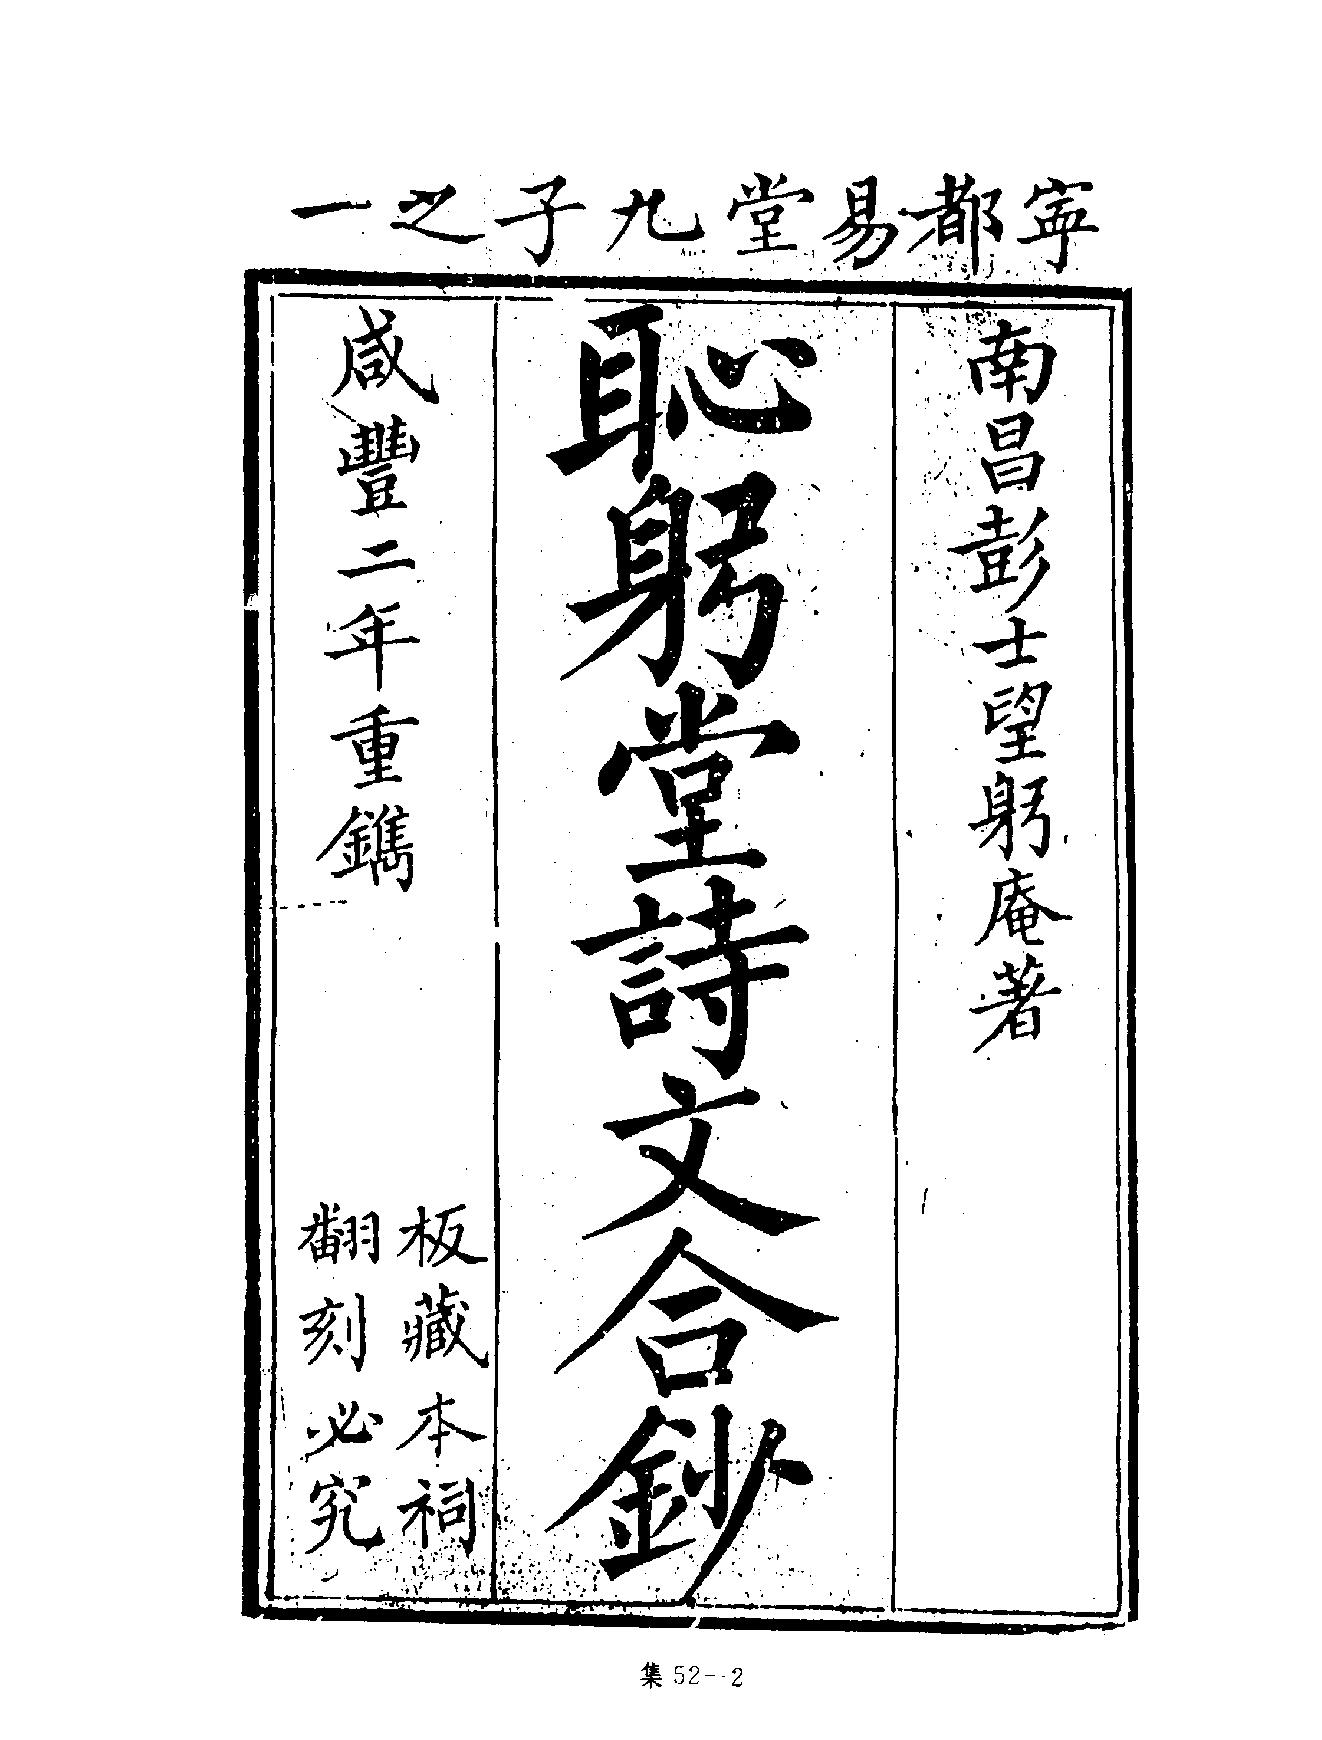 寧都易堂九子之一
南昌彭士望躬庵著
恥躬堂詩文合鈔
咸豐二年重鐫
板藏本祠
翻刻必究
集 52—2